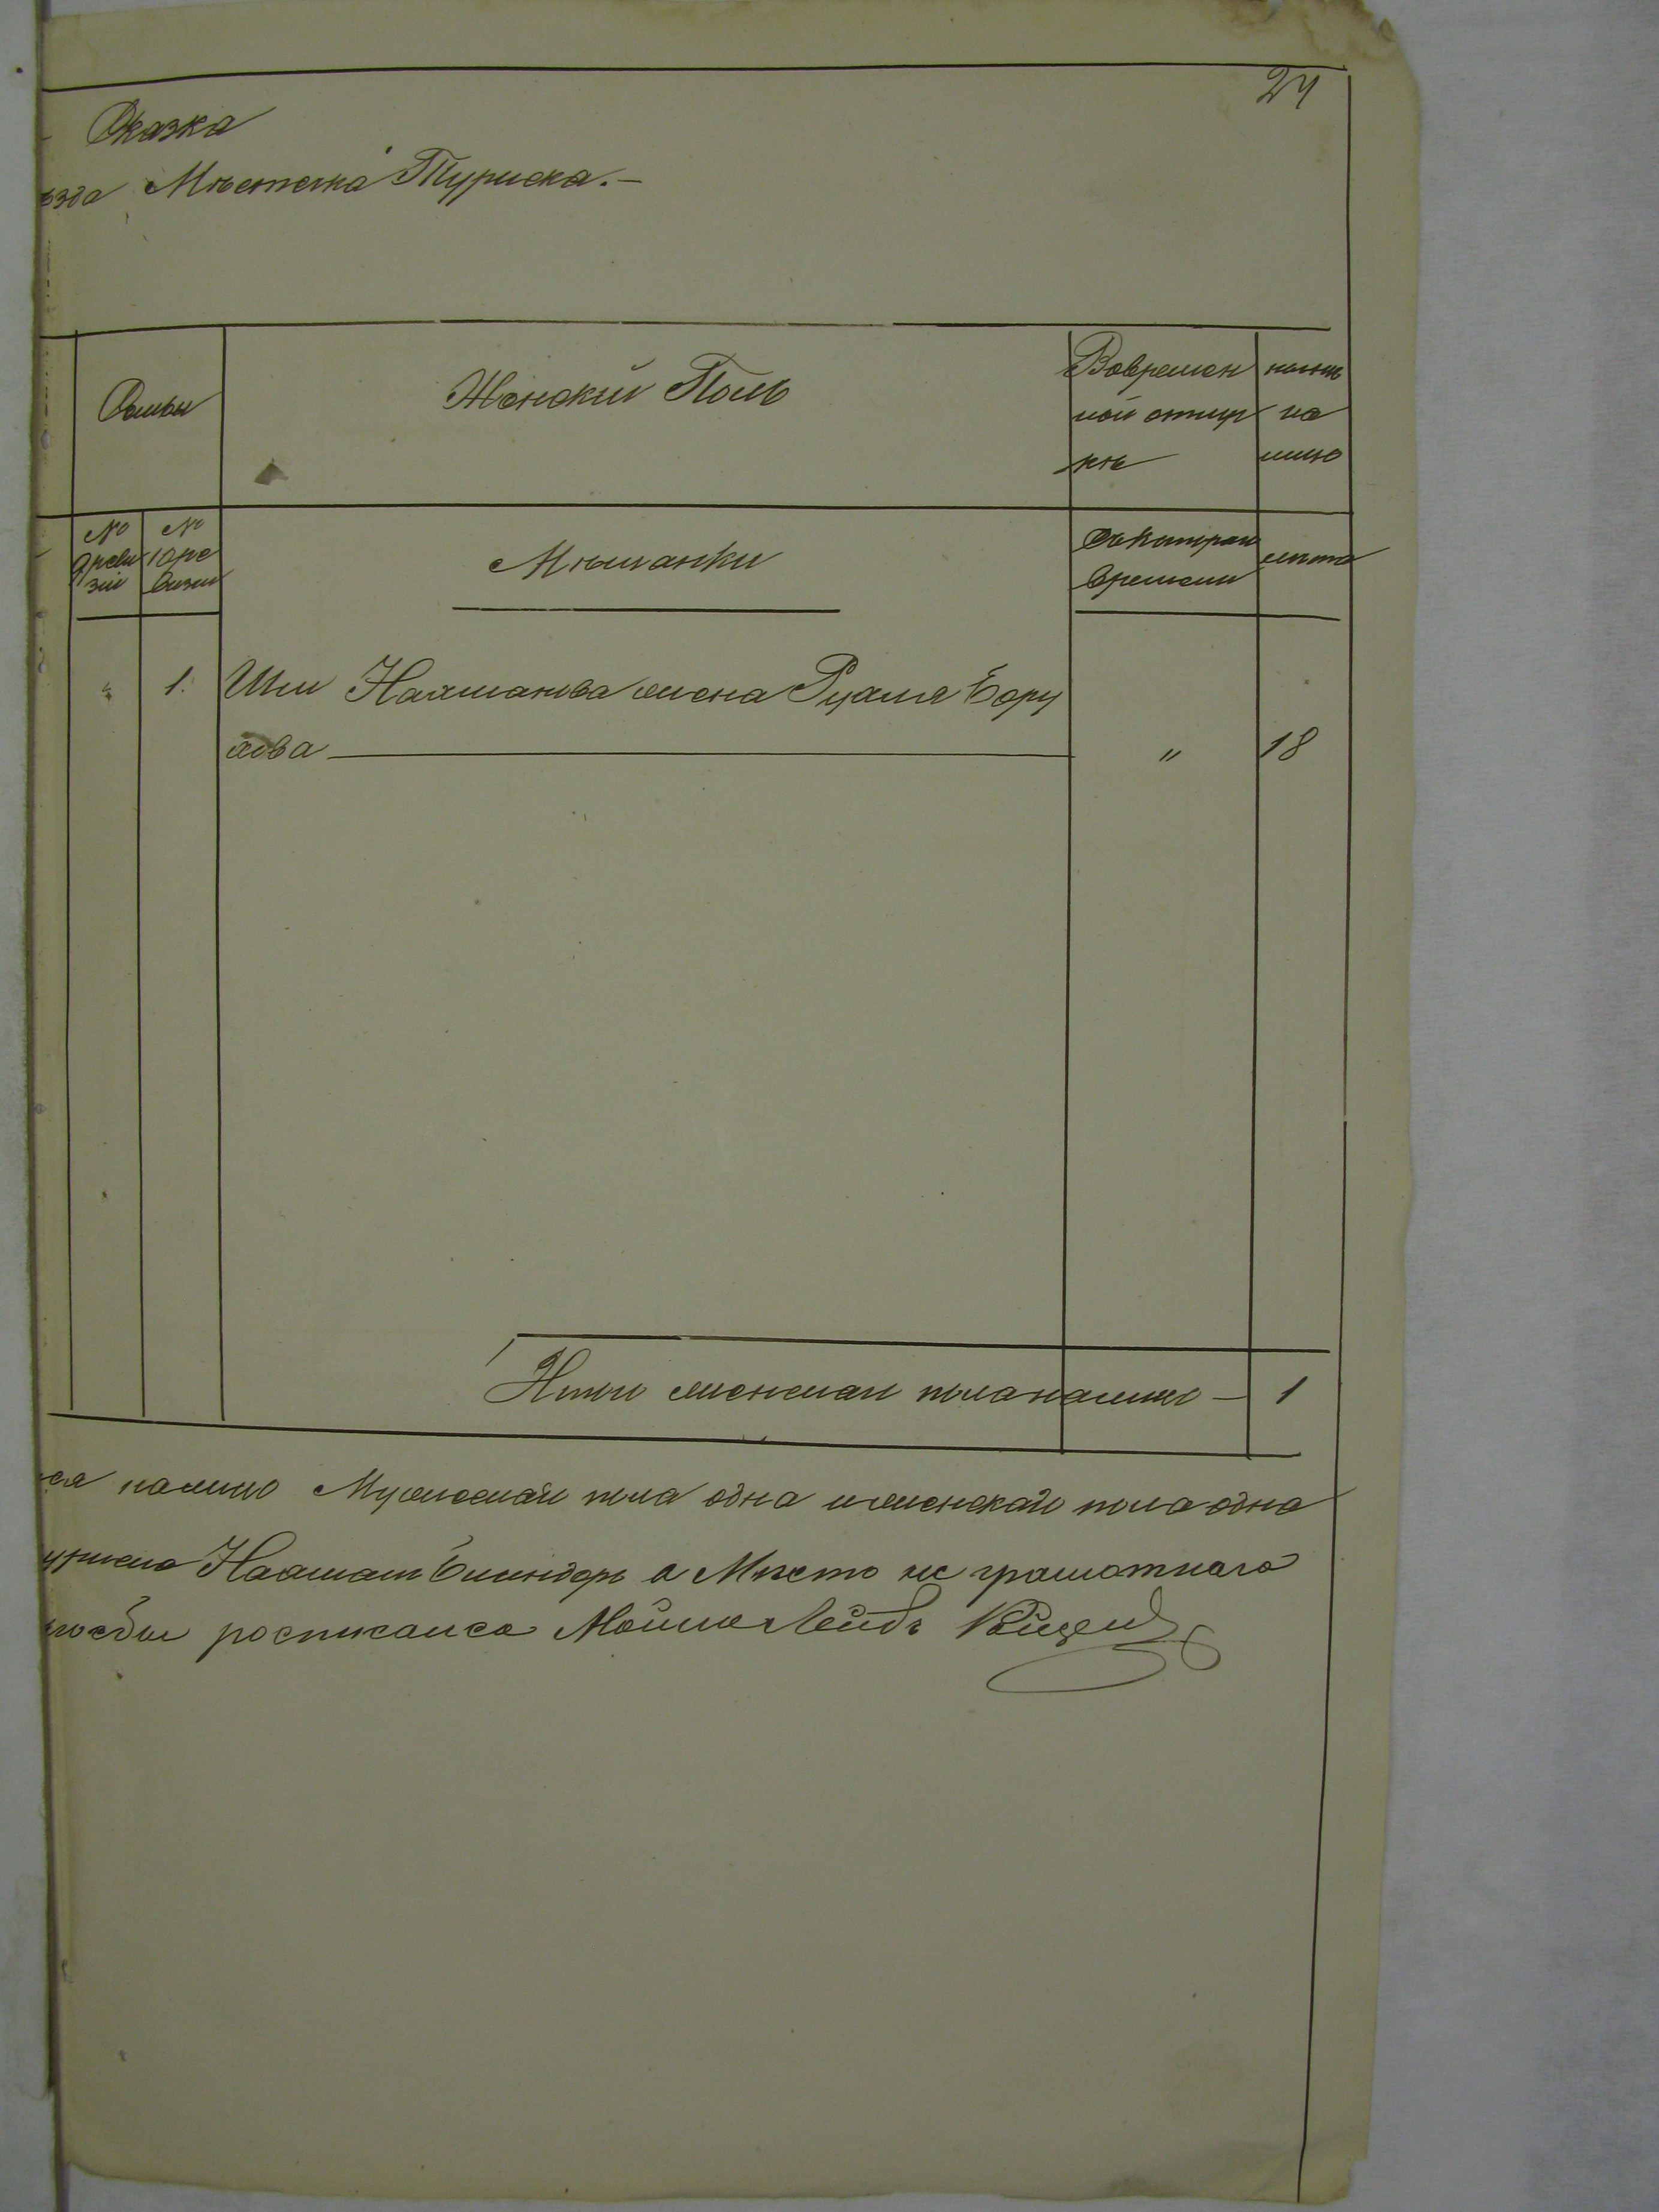 24
Сказка
ѣзда Мѣстечка Туриска.–
Семьи
Женскій Полъ
Вовремен
ной отлуч
кѣ
нынѣ
на
лицо
№
9 реви
зіи
№
10 ре
визіи
Мѣщанки
Съкотораго
времени
лѣта
"
1.
Нахманова жена Рухля Бору
хова
"
18
Итого женскаго пола налицо –
1
ся налицо Мужескаго пола одна иженскаго пола одна
Нахманъ а Мѣсто не грамотнаго
росписался Мошко Лейбъ